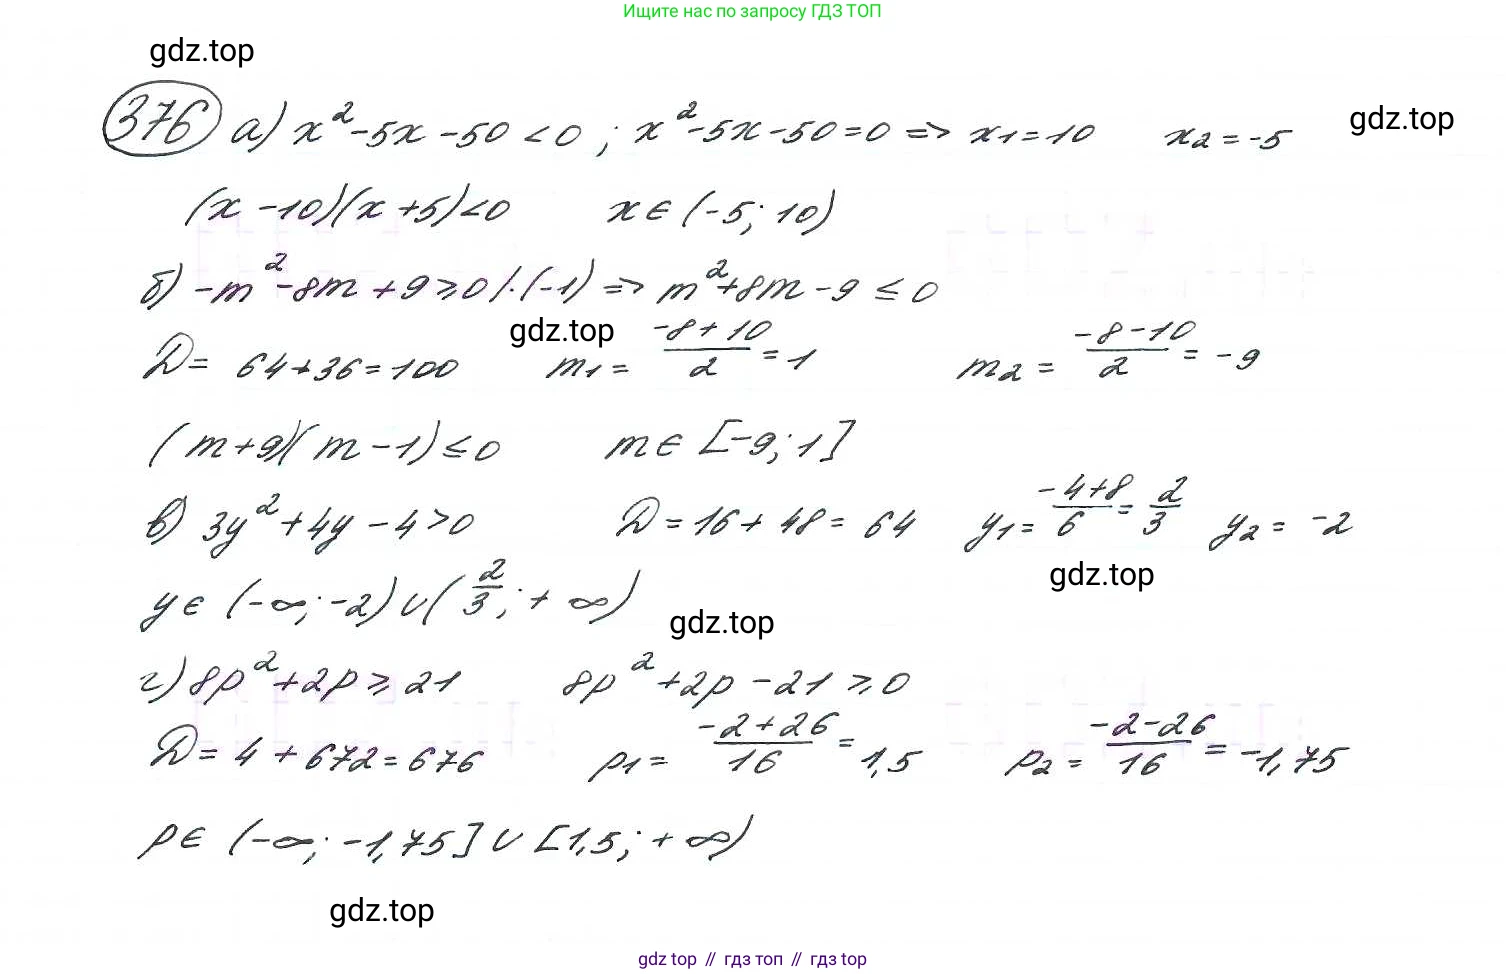 Ищите нас по запросу ГДЗ ТОП
gdz.top
376 а) x²-5x-50<0; x²-5x-50=0 => x1=10 x2=-5
gdz.top
(x-10)(x+5)<0 x∈(-5;10)
б) -m²-8m+9≥0 |·(-1) => m²+8m-9≤0
gdz.top
D=64+36=100 m1=(-8+10)/2=1 m2=(-8-10)/2=-9
(m+9)(m-1)≤0 m∈[-9;1]
в) 3y²+4y-4>0 D=16+48=64 y1=(-4+8)/6=2/3 y2=-2
gdz.top
y∈(-∞;-2)∪(2/3;+∞)
gdz.top
г) 8p²+2p≥21 8p²+2p-21≥0
D=4+672=676 p1=(-2+26)/16=1,5 p2=(-2-26)/16=-1,75
p∈(-∞;-1,75]∪[1,5;+∞)
gdz.top
gdz.top // гдз топ // gdz.top